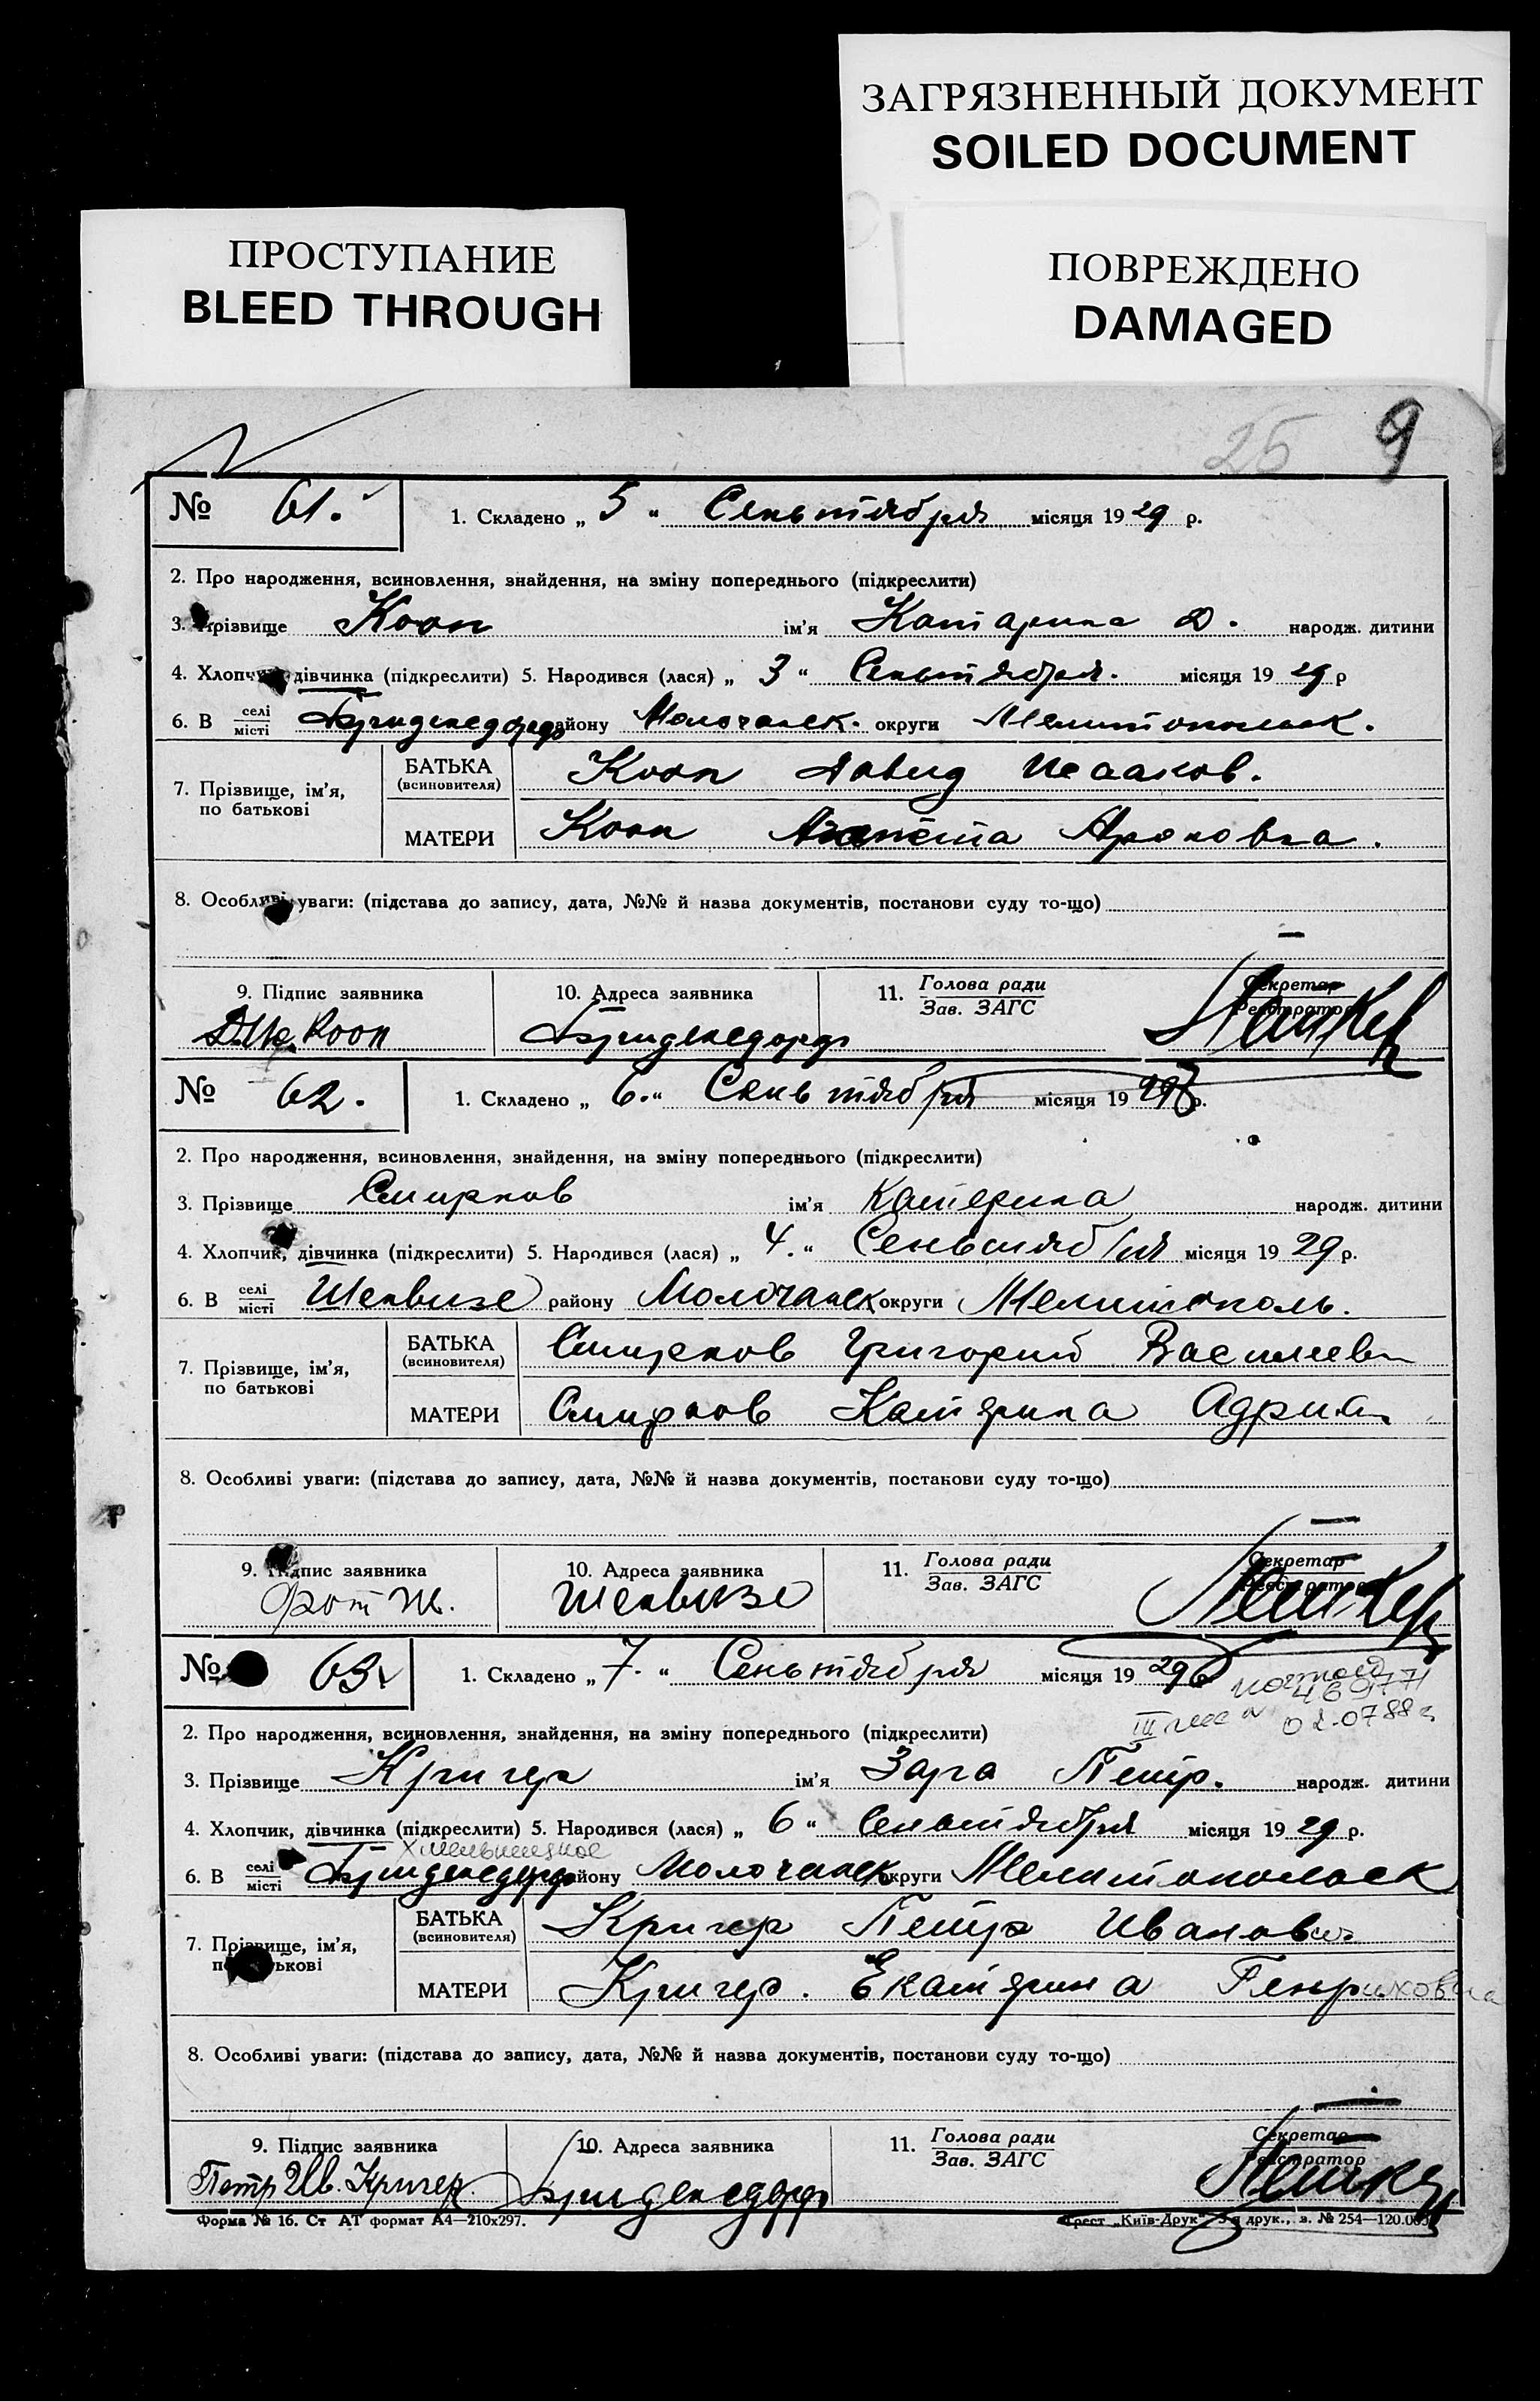 ЗАГРЯЗНЕННЫЙ ДОКУМЕНТ
SOILED DOCUMENT
ПРОСТУПАНИЕ
BLEED THROUGH
ПОВРЕЖДЕНО
DAMAGED
25 9
№ 61. 1. Складено „ 5 “ Сеньтября місяця 1929 р.
2. Про народження, всиновлення, знайдення, на зміну попереднього (підкреслити)
3. Прізвище Кооп ім’я Катарина Д. народж. дитини
4. Хлопчик, дівчинка (підкреслити) 5. Народився (лася) „ 3 “ Сеньтября. місяця 1929 р
6. В селі місті Бриденсдорф району Молочанск. округи Мелитопольск.
7. Прізвище, ім’я, по батькові БАТЬКА (всиновителя) Кооп Давид Исааков.
МАТЕРИ Кооп Ароновна.
8. Особливі уваги: (підстава до запису, дата, №№ й назва документів, постанови суду то-що)
9. Підпис заявника 10. Адреса заявника 11. Голова ради Зав. ЗАГС Секретар Реєстратор
Кооп Бриденсдорф
№ 62. 1. Складено „ 6. “ Сеньтября місяця 1929 р.
2. Про народження, всиновлення, знайдення, на зміну попереднього (підкреслити)
3. Прізвище Смирнов ім’я Катерина народж. дитини
4. Хлопчик, дівчинка (підкреслити) 5. Народився (лася) „ 4. “ Сеньтября місяця 1929 р.
6. В селі місті Шенвизе району Молочанск округи Мелитополь.
7. Прізвище, ім’я, по батькові БАТЬКА (всиновителя) Смирнов Григорий Васильев
МАТЕРИ Смирнов Катярина Адриан
8. Особливі уваги: (підстава до запису, дата, №№ й назва документів, постанови суду то-що)
9. Підпис заявника 10. Адреса заявника 11. Голова ради Зав. ЗАГС Секретар Реєстратор
Шенвизе
№ 63. 1. Складено „ 7. “ Сеньтября місяця 1929
469771
III 02.0788
2. Про народження, всиновлення, знайдення, на зміну попереднього (підкреслити)
3. Прізвище Кригер ім’я Зара Петр. народж. дитини
4. Хлопчик, дівчинка (підкреслити) 5. Народився (лася) „ 6 “ Сеньтября місяця 1929 р.
Хмельницкое
6. В селі місті Бриденсдорф району Молочанск округи Мелитопольск
7. Прізвище, ім’я, по батькові БАТЬКА (всиновителя) Кригер Петр Иванович
МАТЕРИ Кригер. Екатярина Генриховна
8. Особливі уваги: (підстава до запису, дата, №№ й назва документів, постанови суду то-що)
9. Підпис заявника 10. Адреса заявника 11. Голова ради Зав. ЗАГС Секретар Реєстратор
Петр Ив. Кригер. Бриденсдорф
Форма № 16. Ст АТ формат А4—210х297. Трест „Київ-Друк“ 3-я друк., з. № 254—120.003